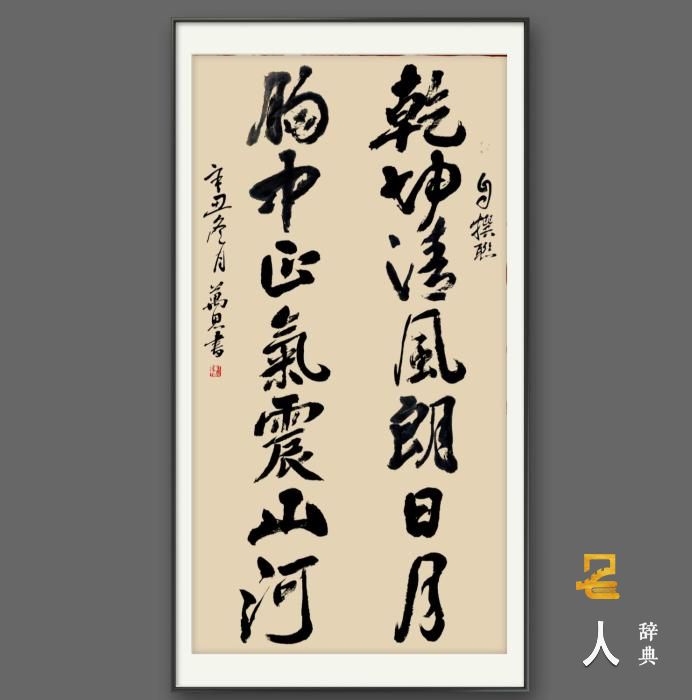 自撰联
乾坤清风朗日月
胸中正氣震山河
辛丑冬月 萬里書
名人辞典